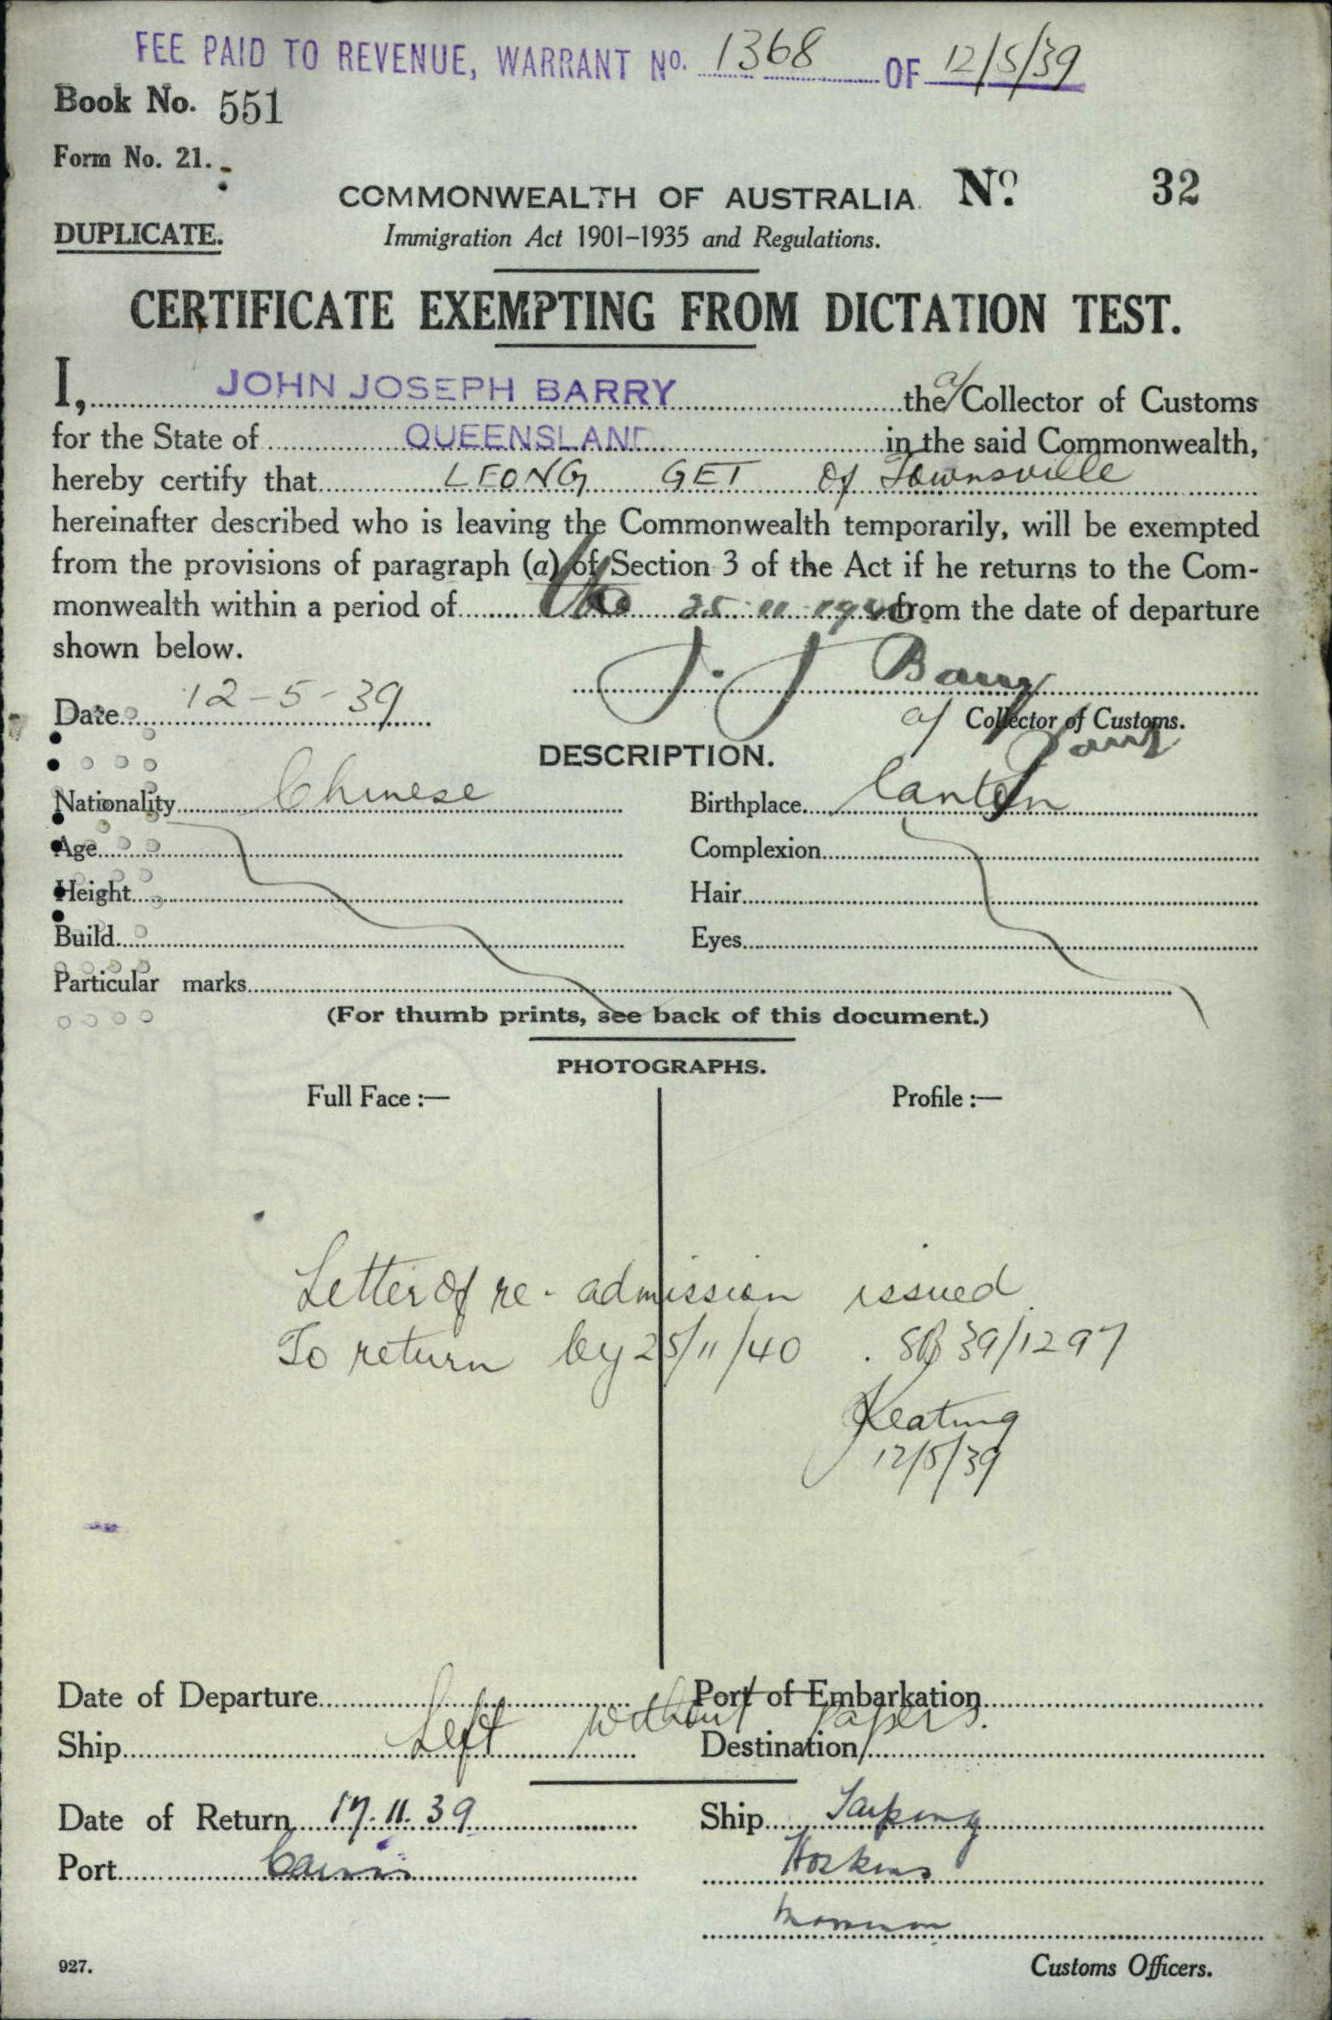 FEE PAID TO REVENUE, WARRANT No. 1368 OF 12/5/39
Book No. 551
Form No. 21.
COMMONWEALTH OF AUSTRALIA. No. 32
DUPLICATE. Immigration Act 1901–1935 and Regulations.
CERTIFICATE EXEMPTING FROM DICTATION TEST.
I, JOHN JOSEPH BARRY the a/ Collector of Customs
for the State of QUEENSLAND in the said Commonwealth,
hereby certify that LEONG GET of Townsville
hereinafter described who is leaving the Commonwealth temporarily, will be exempted
from the provisions of paragraph (a) of Section 3 of the Act if he returns to the Com-
monwealth within a period of to 25.11.1940 from the date of departure
shown below.
J. J Barry
Date 12-5-39 a/ Collector of Customs.
DESCRIPTION.
Nationality Chinese Birthplace Canton
Age Complexion
Height Hair
Build Eyes
Particular marks
(For thumb prints, see back of this document.)
PHOTOGRAPHS.
Full Face :— Profile :—
Letter of re-admission issued.
To return by 25/11/40. 39/1297
Keating
12/5/39
Date of Departure Port of Embarkation
Left without papers.
Ship Destination
Date of Return 17.11.39 Ship Taiping
Port Cairns Hoskins
Customs Officers.
927.